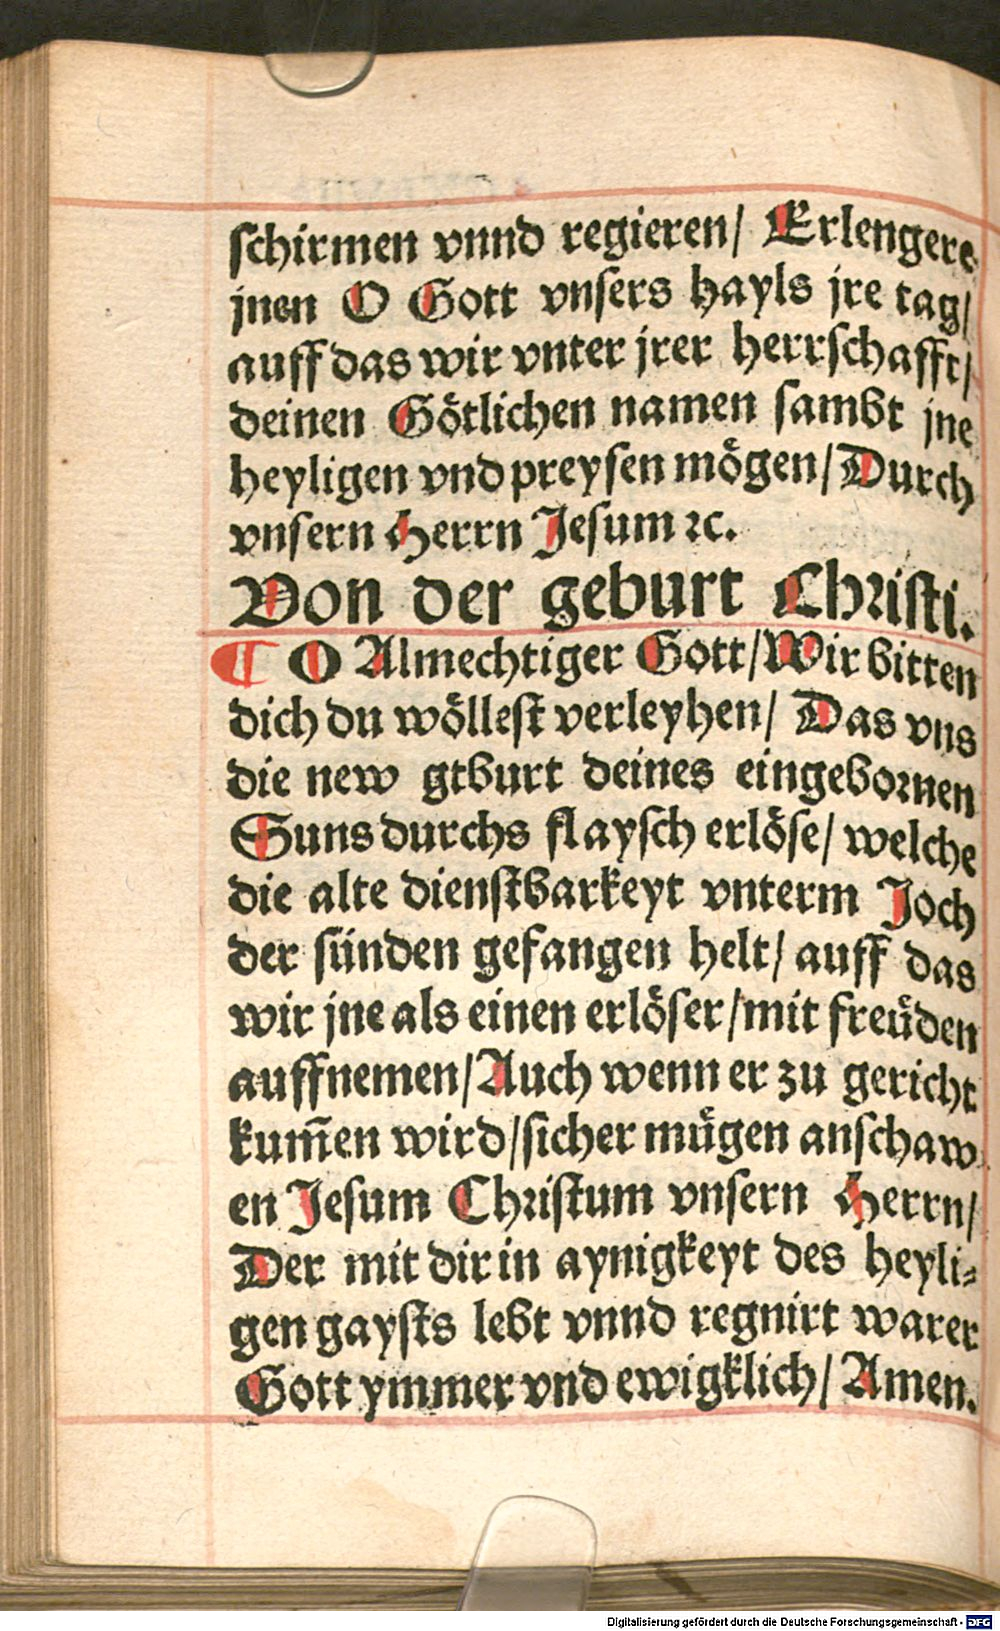 schirmen vnnd regieren/ Erlengere
jnen O Gott vnsers hayls jre tag/
auff das wir vnter jrer herrschafft/
deinen Götlichen namen sambt jne
heyligen vnd preysen mögen/ Durch
vnsern Herrn Jesum ꝛc.
Von der geburt Christi.
¶ O Almechtiger Gott/ Wir bitten
dich du wöllest verleyhen/ Das vns
die new gtburt deines eingebornen
Suns durchs flaysch erlöse/ welche
die alte dienstbarkeyt vnterm Joch
der sünden gefangen helt/ auff das
wir jne als einen erlöser/ mit freüden
auffnemen/ Auch wenn er zu gericht
kum̄en wird/ sicher mügen anschaw
en Jesum Christum vnsern Herrn/
Der mit dir in aynigkeyt des heyli-
gen gaysts lebt vnnd regnirt warer
Gott ymmer vnd ewigklich/ Amen.
Digitalisierung gefördert durch die Deutsche Forschungsgemeinschaft - DFG